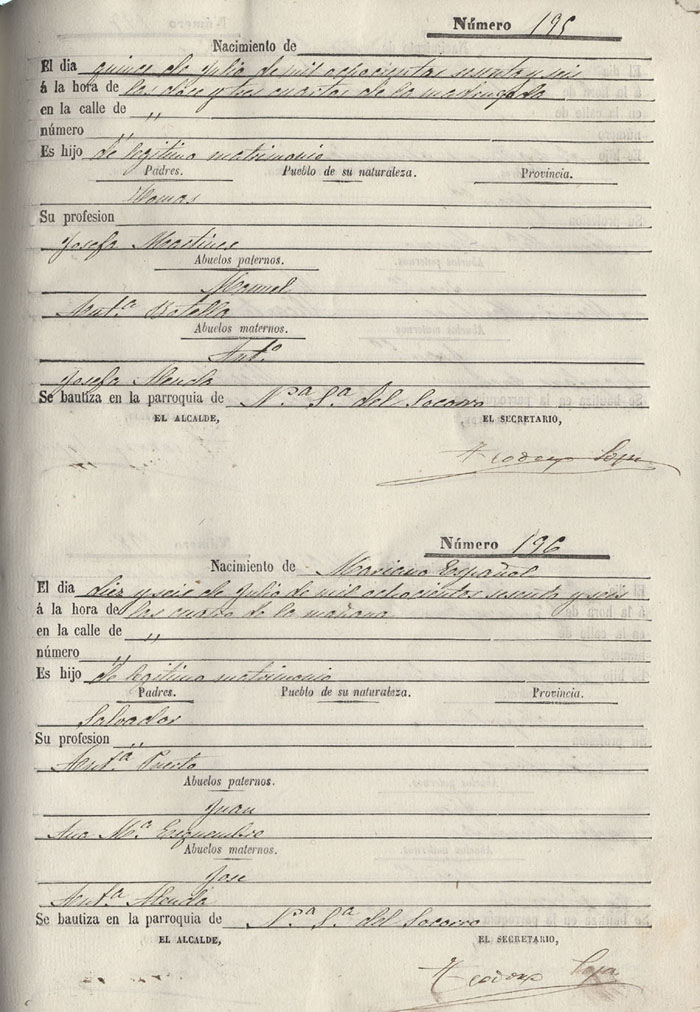 Número 195
Nacimiento de
El dia quince de Julio de mil ochocientos sesenta y seis
á la hora de las doce y tres cuartos de la madrugada
en la calle de „
número „
Es hijo de legitimo matrimonio
Padres. Pueblo de su naturaleza. Provincia.
Tomas
Su profesion
Josefa Martinez
Abuelos paternos.
Manuel
Ant.ª Botella
Abuelos maternos.
Ant.º
Josefa Alenda
Se bautiza en la parroquia de N.ª S.ª del Socorro
EL ALCALDE, EL SECRETARIO,
Número 196
Nacimiento de Mariano Español
El dia diez y seis de Julio de mil ochocientos sesenta y seis
á la hora de las cuatro de la mañana
en la calle de „
número „
Es hijo de legitimo matrimonio
Padres. Pueblo de su naturaleza. Provincia.
Salvador
Su profesion „
Ant.ª Puerto
Abuelos paternos.
Juan
Ana M.ª Esquembre
Abuelos maternos.
Jose
Ant.ª Alenda
Se bautiza en la parroquia de N.ª S.ª del Socorro
EL ALCALDE, EL SECRETARIO,